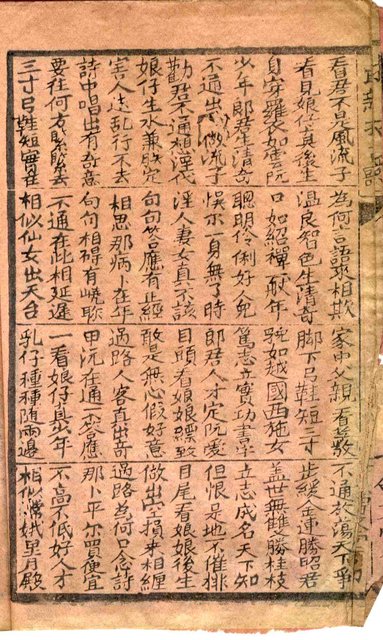 看君不是風流子 為何言語來相欺 家中父親看嚴教 不通放蕩天下事
看見娘仔真後生 溫良知色生清奇 脚下弓鞋短三寸 步緩金連勝昭君
身穿羅衣如雪阮 口如紹禪一般年 貌如越國西施女 盖世無雙勝桂枝
少年郎君生清奇 聰明伶俐好人兒 篤志立實功書字 立志成名天下知
不通出 做流子 悞尔一身無了時 郎君人才定阮愛 但恨是地不催排
勸君不通想淫代 淫人妻女真不該 目頭看娘娘縹致 目尾看娘娘後生
娘仔生水兼 定 句句答應有止經 敢是無心假好意 做出六損來相纏
害人迷乱行不去 相思那病卜在年 過路人客直出奇 過路為何只念詩
詩中唱出有奇意 句句相碍有蹺 甲阮在通一答應 那卜平尔買便宜
要往何方緊緊去 不通在此相延遲 一看娘仔是少年 不高不低好人才
三寸弓鞋短實在 相似仙女出天台 乳仔種種隨兩邊 相似嫦娥呈月殿